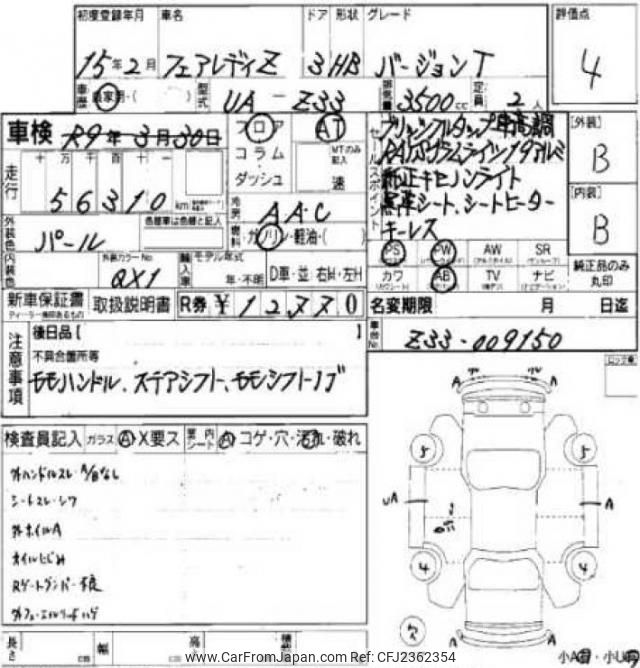 初度登録年月 車名 ドア 形状 グレード 評価点
15年2月 フェアレディZ 3 HB バージョンT 4
車歴 自家用・( ) 型式 UA-Z33 排気量 3500cc 定員 2人
車検 R9年3月30日 フロア AT
コラム MTのみ記入
ダッシュ 速
セールスポイント
19アルミ
純正キセノンライト
黒革シート、シートヒーター
キーレス
[外装] B
[内装] B
走行 十万千百十一
56310km
冷房 AAC
燃料 ガソリン・軽油・( )
外装色 パール 色替車は色替と記入
内装色 外装カラーNo. QX1
輸入車 モデル年式 年・不明 D車・並 右H・左H
PS PW AW SR
カワ AB TV ナビ
純正品のみ丸印
新車保証書 取扱説明書 R券 ¥12770
名変期限 月 日迄
車台No. Z33-009150
注意事項
後日品[ ]
不具合箇所等
モモハンドル、ステアシフト、モモシフトノブ
検査員記入 ガラス A・X要ス 内シート A コゲ・穴・汚れ・破れ
外ハンドルスレ・
シートスレ・シワ
外ホイルA
オイルにじみ
Rゲートダンパー不良
A A
5 5
UA A
4 4
A A
長さ cm 幅 cm 高 cm
www.CarFromJapan.com Ref: CFJ2362354